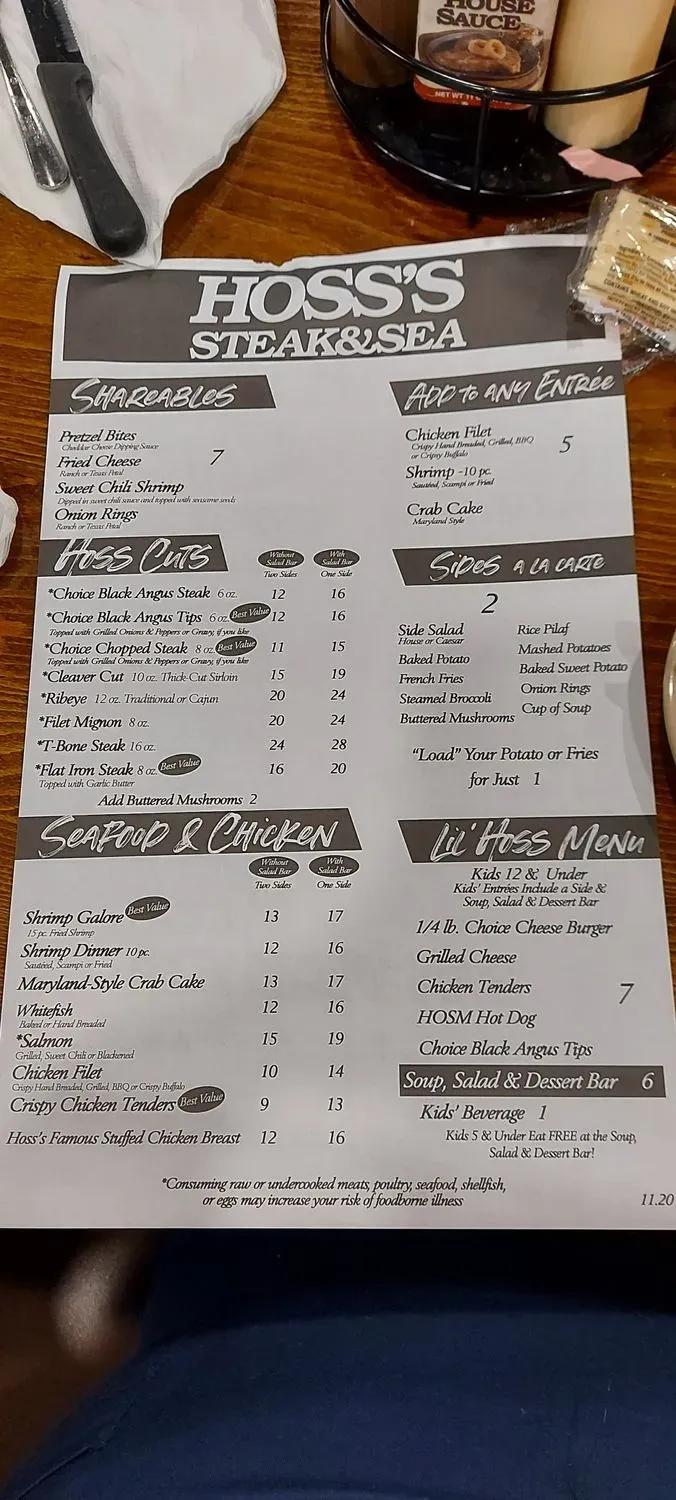 HOUSE
SAUCE
HOSS'S
STEAK&SEA
SHAREABLES
Pretzel Bites
Cheddar Cheese Dipping Sauce
Fried Cheese 7
Ranch or Texas Petal
Sweet Chili Shrimp
Dipped in sweet chili sauce and topped with seasame seeds
Onion Rings
Ranch or Texas Petal
ADD TO ANY ENTRÉE
Chicken Filet 5
Crispy Hand Breaded, Grilled, BBQ
or Cripsy Buffalo
Shrimp -10 pc.
Sautéed, Scampi or Fried
Crab Cake
Maryland Style
HOSS CUTS
Without
Salad Bar
Two Sides
With
Salad Bar
One Side
*Choice Black Angus Steak 6 oz. 12 16
*Choice Black Angus Tips 6 oz. Best Value 12 16
Topped with Grilled Onions & Peppers or Gravy, if you like
*Choice Chopped Steak 8 oz. Best Value 11 15
Topped with Grilled Onions & Peppers or Gravy, if you like
*Cleaver Cut 10 oz. Thick-Cut Sirloin 15 19
*Ribeye 12 oz. Traditional or Cajun 20 24
*Filet Mignon 8 oz. 20 24
*T-Bone Steak 16 oz. 24 28
*Flat Iron Steak 8 oz. Best Value 16 20
Topped with Garlic Butter
Add Buttered Mushrooms 2
SIDES A LA CARTE
2
Side Salad
House or Caesar
Baked Potato
French Fries
Steamed Broccoli
Buttered Mushrooms
Rice Pilaf
Mashed Potatoes
Baked Sweet Potato
Onion Rings
Cup of Soup
"Load" Your Potato or Fries
for Just 1
SEAFOOD & CHICKEN
Without
Salad Bar
Two Sides
With
Salad Bar
One Side
Shrimp Galore Best Value 13 17
15 pc. Fried Shrimp
Shrimp Dinner 10 pc. 12 16
Sautéed, Scampi or Fried
Maryland-Style Crab Cake 13 17
Whitefish 12 16
Baked or Hand Breaded
*Salmon 15 19
Grilled, Sweet Chili or Blackened
Chicken Filet 10 14
Crispy Hand Breaded, Grilled, BBQ or Crispy Buffalo
Crispy Chicken Tenders Best Value 9 13
Hoss's Famous Stuffed Chicken Breast 12 16
LIL' HOSS MENU
Kids 12 & Under
Kids' Entrées Include a Side &
Soup, Salad & Dessert Bar
1/4 lb. Choice Cheese Burger
Grilled Cheese
Chicken Tenders 7
HOSM Hot Dog
Choice Black Angus Tips
Soup, Salad & Dessert Bar 6
Kids' Beverage 1
Kids 5 & Under Eat FREE at the Soup,
Salad & Dessert Bar!
*Consuming raw or undercooked meats, poultry, seafood, shellfish,
or eggs may increase your risk of foodborne illness
11.20